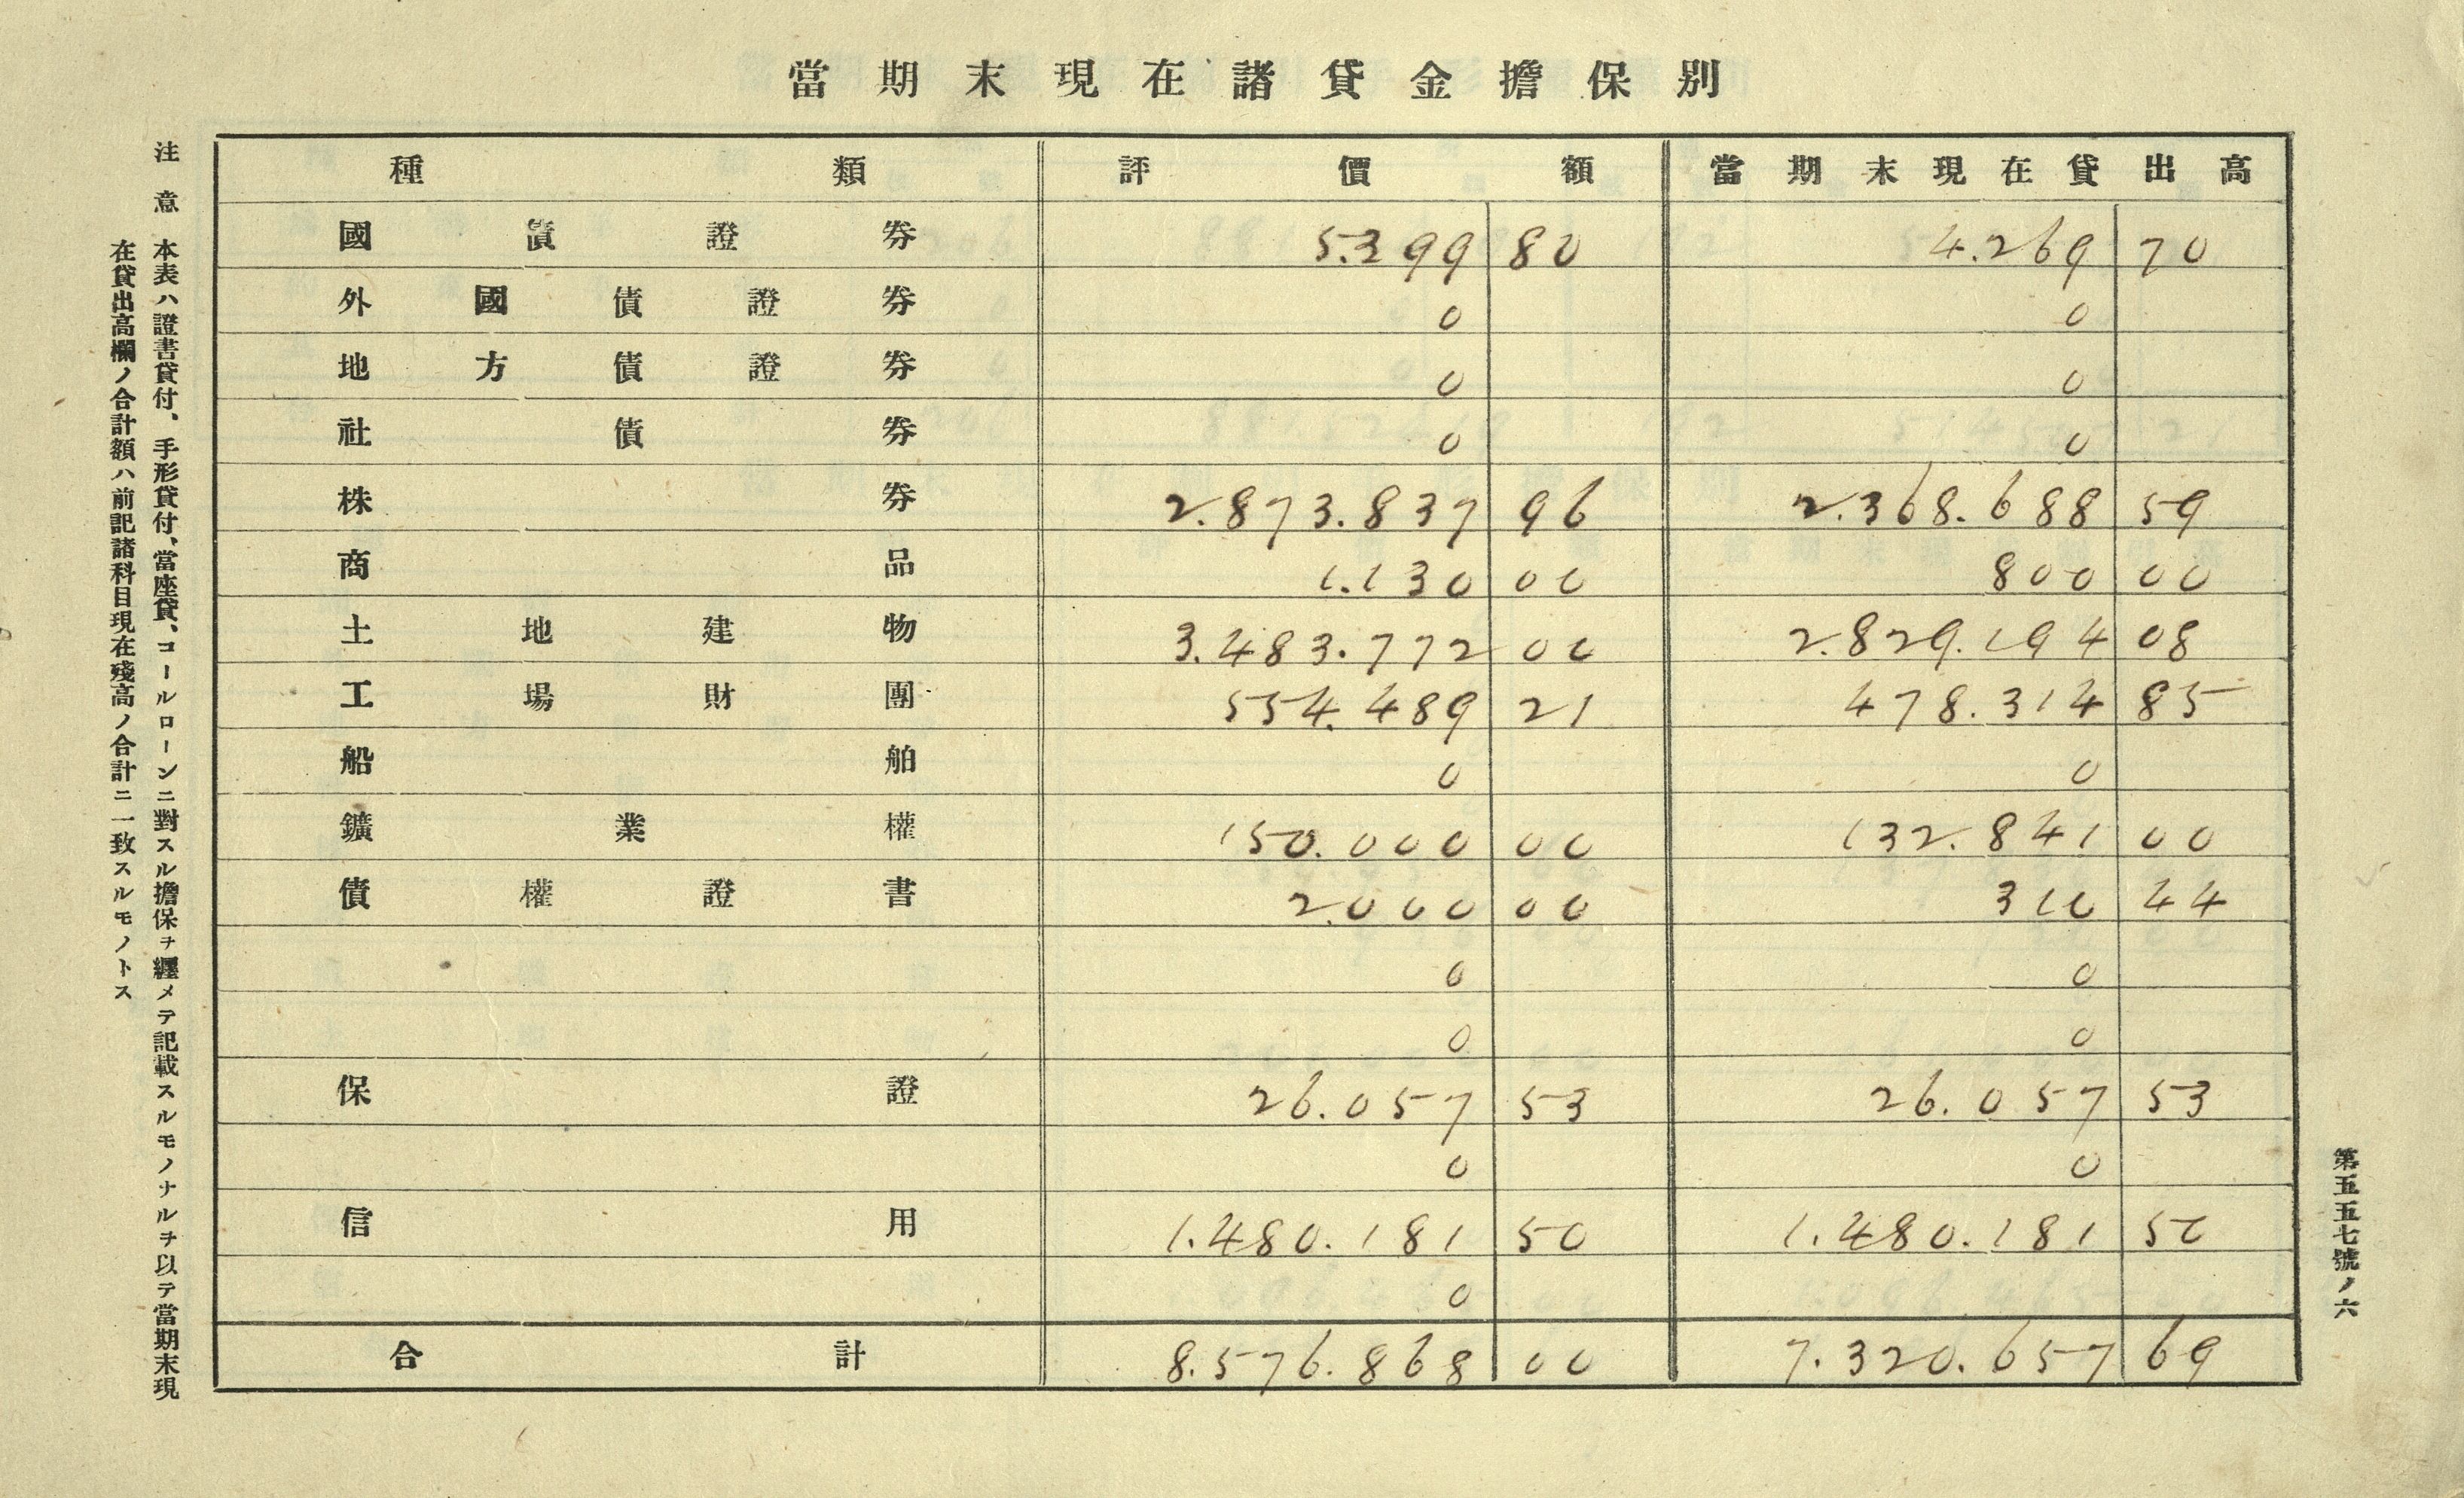 當期末現在諸貸金擔保別
種類 評價額 當期末現在貸出高
國債證券 5.399 80 4.269 70
外國債證券 0 0
地方債證券 0 0
社債券 0 0
株券 2.873.837 96 2.368.688 59
商品 1.130 00 800 00
土地建物 3.483.772 00 2.829.194 08
工場財團 554.489 21 478.314 85
船舶 0 0
鑛業權 150.000 00 132.841 00
債權證書 2.000 00 310 44
0 0
0 0
保證 26.057 53 26.057 53
0 0
信用 1.480.181 50 1.480.181 50
0
合計 8.576.868 00 7.320.657 69
第五五七號ノ六
注意 本表ハ證書貸付、手形貸付、當座貸、コールローンニ對スル擔保ヲ纒メテ記載スルモノナルヲ以テ當期末現
在貸出高欄ノ合計額ハ前記諸科目現在殘高ノ合計ニ一致スルモノトス